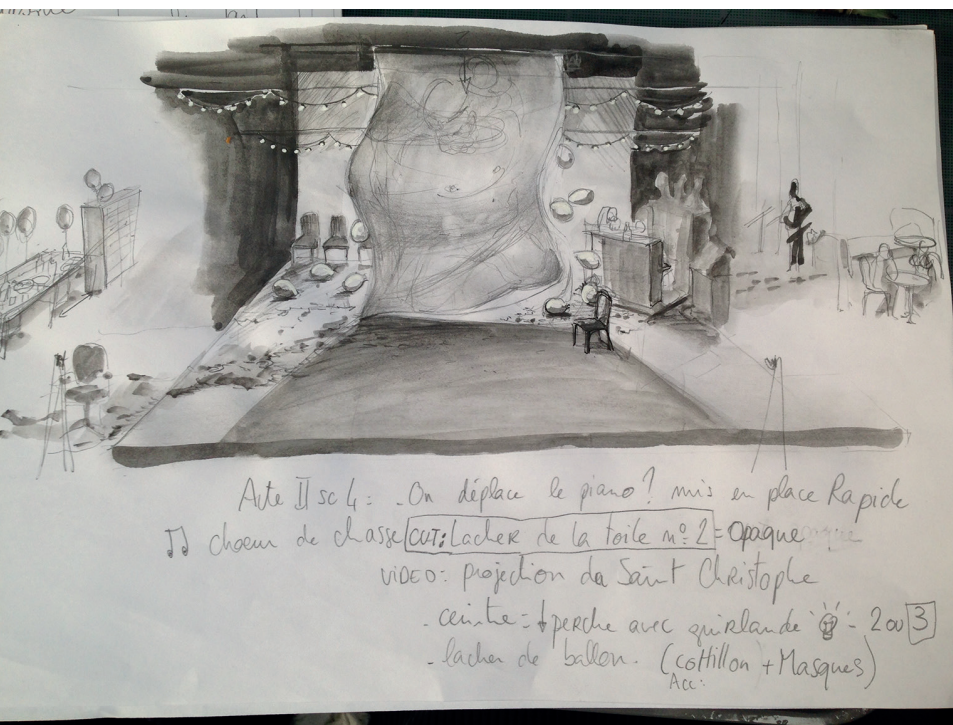 Acte II sc 4 : - On déplace le piano ? mis en place Rapide
♫ choeur de chasse CUT: Lacher de la toile n° 2 = Opaque
VIDEO: projection du Saint Christophe
- ceintre = ↓ perche avec guirlande - 2 ou 3
- lacher de ballon. (cottillon + Masques)
Acc: